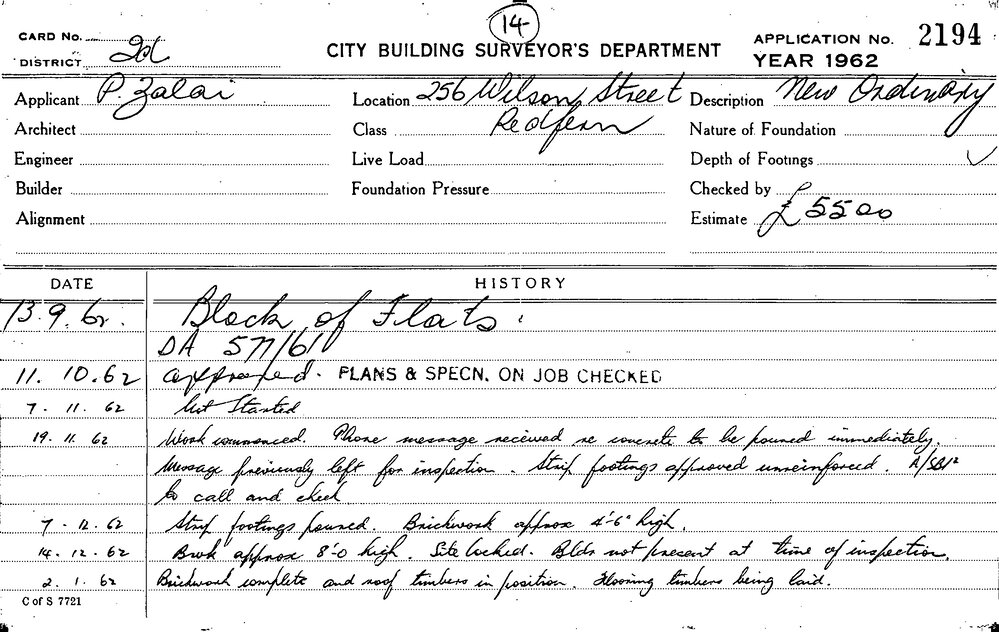 14
CARD No.
DISTRICT 2d
CITY BUILDING SURVEYOR'S DEPARTMENT
APPLICATION No. 2194
YEAR 1962
Applicant P. Zalai
Location 256 Wilson Street
Redfern
Description New Ordinary
Architect
Class
Nature of Foundation
Engineer
Live Load
Depth of Footings
Builder
Foundation Pressure
Checked by
Alignment
Estimate £5500
DATE HISTORY
13.9.62. Block of Flats.
DA 577/61
11.10.62 approved. PLANS & SPECN. ON JOB CHECKED
7.11.62 Not Started
19.11.62 Work commenced. Phone message received re concrete to be poured immediately.
Message previously left for inspection. Strip footings approved unreinforced.
to call and check
7.12.62 Strip footings poured. Brickwork approx 4'-6" high.
14.12.62 Bwk approx 8'-0 high. Site locked. Bldr not present at time of inspection.
2.1.62 Brickwork complete and roof timbers in position. Flooring timbers being laid.
C of S 7721